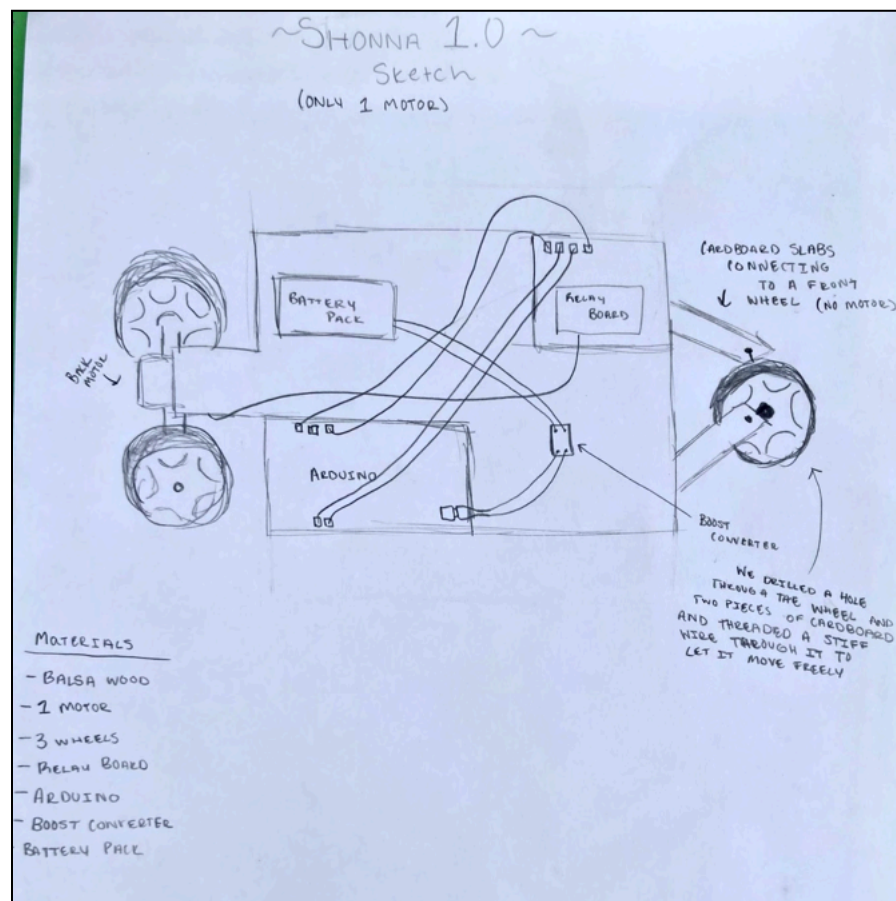 ~SHONNA 1.0~
Sketch
(ONLY 1 MOTOR)
CARDBOARD SLABS
CONNECTING
TO A FRONT
WHEEL (NO MOTOR)
BATTERY
PACK
RELAY
BOARD
BACK
MOTOR
ARDUINO
BOOST
CONVERTER
WE DRILLED A HOLE
THROUGH THE WHEEL AND
TWO PIECES OF CARDBOARD
AND THREADED A STIFF
WIRE THROUGH IT TO
LET IT MOVE FREELY
MATERIALS
- BALSA WOOD
- 1 MOTOR
- 3 WHEELS
- RELAY BOARD
- ARDUINO
- BOOST CONVERTER
- BATTERY PACK